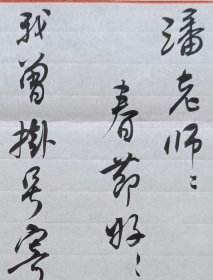 潘老师：
春节好！
我曾掛号寄